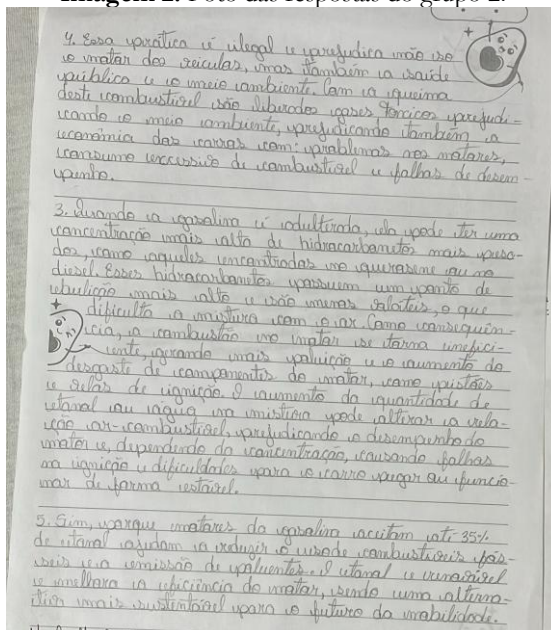 Imagem 2. Foto das respostas do grupo 2.
4. Essa prática é ilegal e prejudica não só
o motor dos veículos, mas também a saúde
pública e o meio ambiente. Com a queima
deste combustível são liberados gases tóxicos prejudi-
cando o meio ambiente, prejudicando também a
economia dos carros com: problemas nos motores,
consumo excessivo de combustível e falhas de desem-
penho.
3. Quando a gasolina é adulterada, ela pode ter uma
concentração mais alta de hidrocarbonetos mais pesa-
dos, como aqueles encontrados no querosene ou no
diesel. Esses hidrocarbonetos possuem um ponto de
ebulição mais alto e são menos voláteis, o que
dificulta a mistura com o ar. Como consequên-
cia, a combustão no motor se torna inefici-
ente, gerando mais poluição e o aumento do
desgaste de componentes do motor, como pistões
e velas de ignição. O aumento da quantidade de
etanol ou água na mistura pode alterar a rela-
ção ar-combustível, prejudicando o desempenho do
motor e, dependendo da concentração, causando falhas
na ignição e dificuldades para o carro pegar ou funcio-
nar de forma estável.
5. Sim, porque motores da gasolina aceitam até 35%
de etanol ajudam a reduzir o uso de combustíveis fós-
seis e a emissão de poluentes. O etanol é renovável
e melhora a eficiência do motor, sendo uma alterna-
tiva mais sustentável para o futuro da mobilidade.